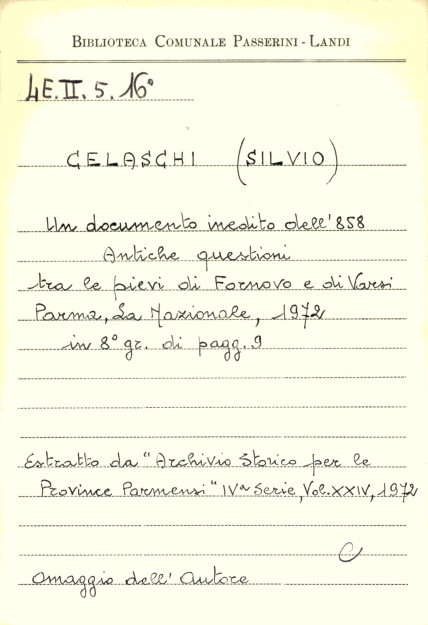 BIBLIOTECA COMUNALE PASSERINI - LANDI
4E.II.5.16°
CELASCHI (SILVIO)
Un documento inedito dell'858
Antiche questioni
tra le pievi di Fornovo e di Varsi
Parma, La Nazionale, 1972
in 8° gr. di pagg. 9
Estratto da "Archivio Storico per le
Province Parmensi" IVª Serie, Vol. XXIV, 1972
C
Omaggio dell'Autore